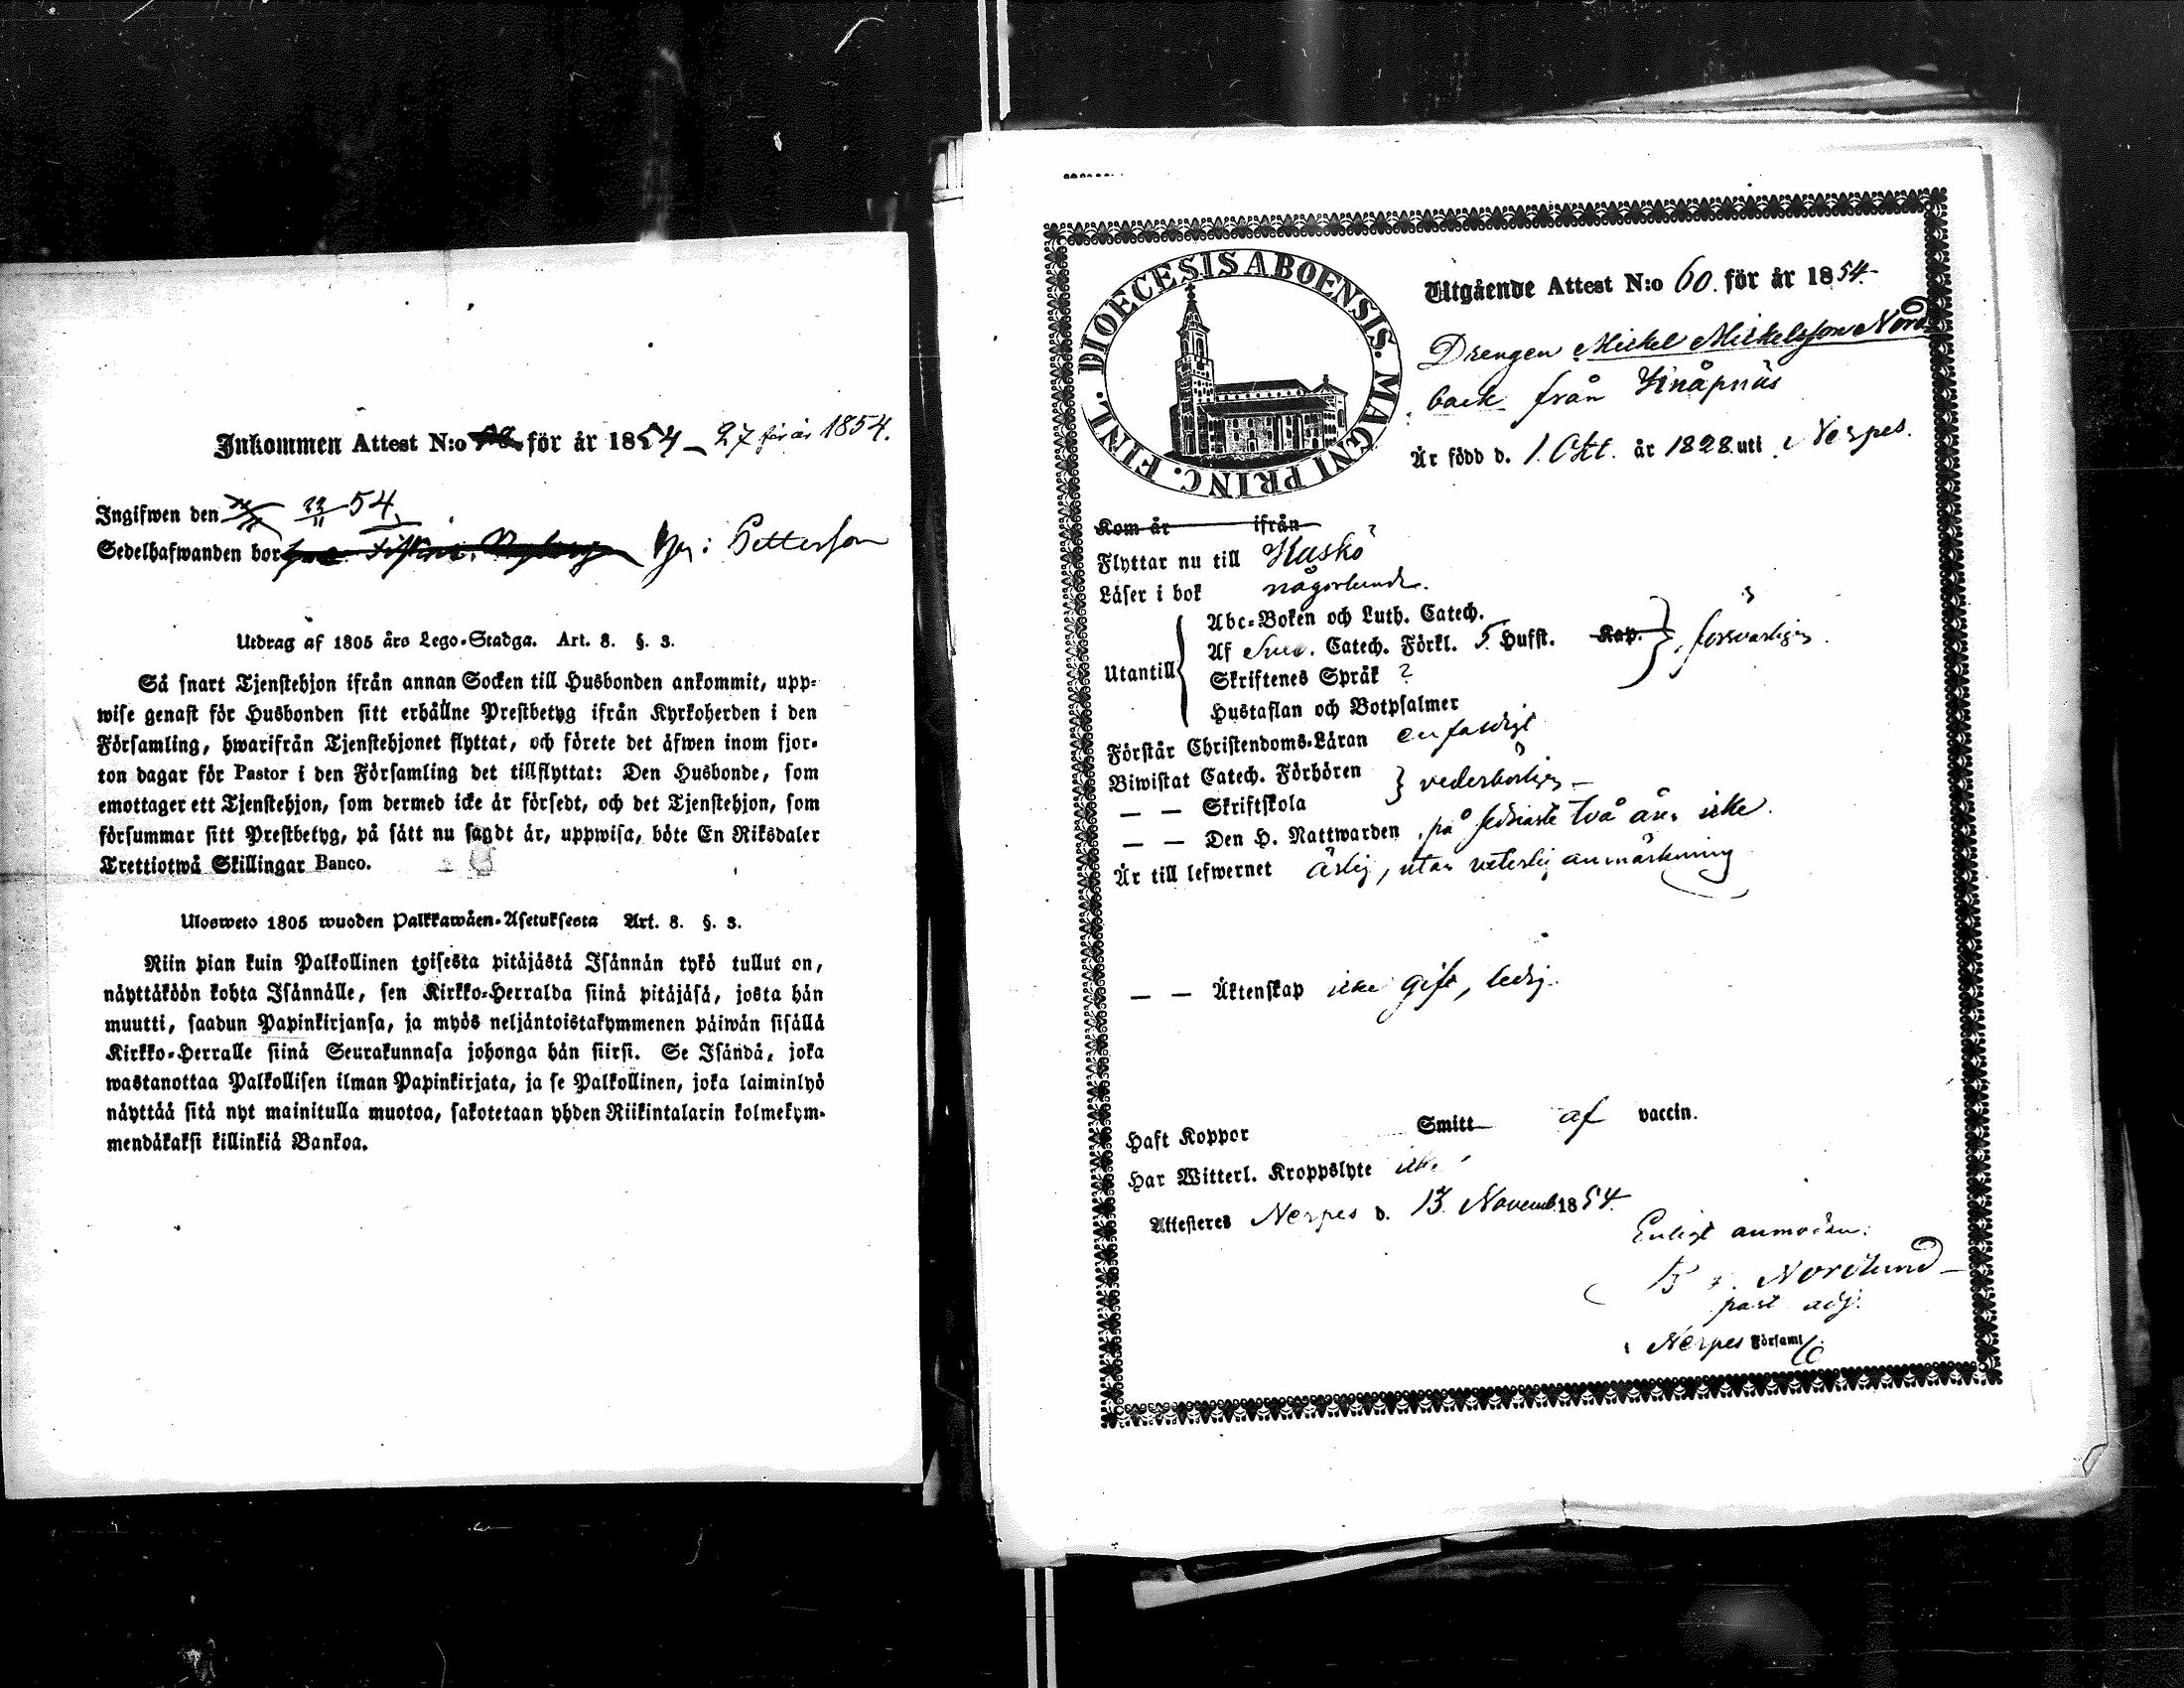 Inkommen Attest N:o för år 1854 – 27 för år 1854.
Ingifwen den 22/11 54.
Sedelhafwanden bor hos: Petterson
Utdrag af 1805 års Lego-Stadga. Art. 8. §. 3.
Så snart Tjenstehjon ifrån annan Socken till Husbonden ankommit, upp-
wise genast för Husbonden sitt erhållne Prestbetyg ifrån Kyrkoherden i den
Församling, hwarifrån Tjenstehjonet flyttat, och förete det äfwen inom fjor-
ton dagar för Pastor i den Församling det tillflyttat: Den Husbonde, som
emottager ett Tjenstehjon, som dermed icke är försedt, och det Tjenstehjon, som
försummar sitt Prestbetyg, på sätt nu sagdt är, uppwisa, böte En Riksdaler
Trettiotwå Skillingar Banco.
Ulosweto 1805 wuoden Palkkawäen-Asetuksesta Art. 8. §. 3.
Niin pian kuin Palkollinen toisesta pitäjästä Isännän tykö tullut on,
näyttäköön kohta Isännälle, sen Kirkko-Herralda siinä pitäjäsä, josta hän
muutti, saadun Papinkirjansa, ja myös neljäntoistakymmenen päiwän sisällä
Kirkko-Herralle siinä Seurakunnasa johonga hän siirsi. Se Isändä, joka
wastanottaa Palkollisen ilman Papinkirjata, ja se Palkollinen, joka laiminlyö
näyttää sitä nyt mainitulla muotoa, sakotetaan yhden Riikintalarin kolmekym-
mendäkaksi killinkiä Bankoa.
DIOECESIS ABOENSIS. MAGNI PRINC. FINL.
Utgående Attest N:o 60. för år 1854.
Drengen Mickel Mickelsson Nord
back från Knåpnäs
Är född d. 1. Oct. år 1828. uti Nerpes.
Kom år ifrån
Flyttar nu till Huskö?
Läser i bok någorlunda.
Utantill
Abc-Boken och Luth. Catech.
Af Sueb. Catech. Förkl. 5. Hufst. Kap. försvarligen.
Skriftenes Språk ?
Hustaflan och Botpsalmer
Förstår Christendoms-Läran enfaldigt
Biwistat Catech. Förhören vederbörligen –
— — Skriftskola
— — Den H. Nattwarden på sednaste två åren icke.
Är till lefwernet ärlig, utan veterlig anmärkning
— — Äktenskap icke gift, ledig.
Haft Koppor Smitt af vaccin.
Har Witterl. Kroppslyte icke
Attesteres Nerpes d. 13. Novemb. 1854.
Enligt anmodan:
Nordlund
past. adj.
i Nerpes Församl.